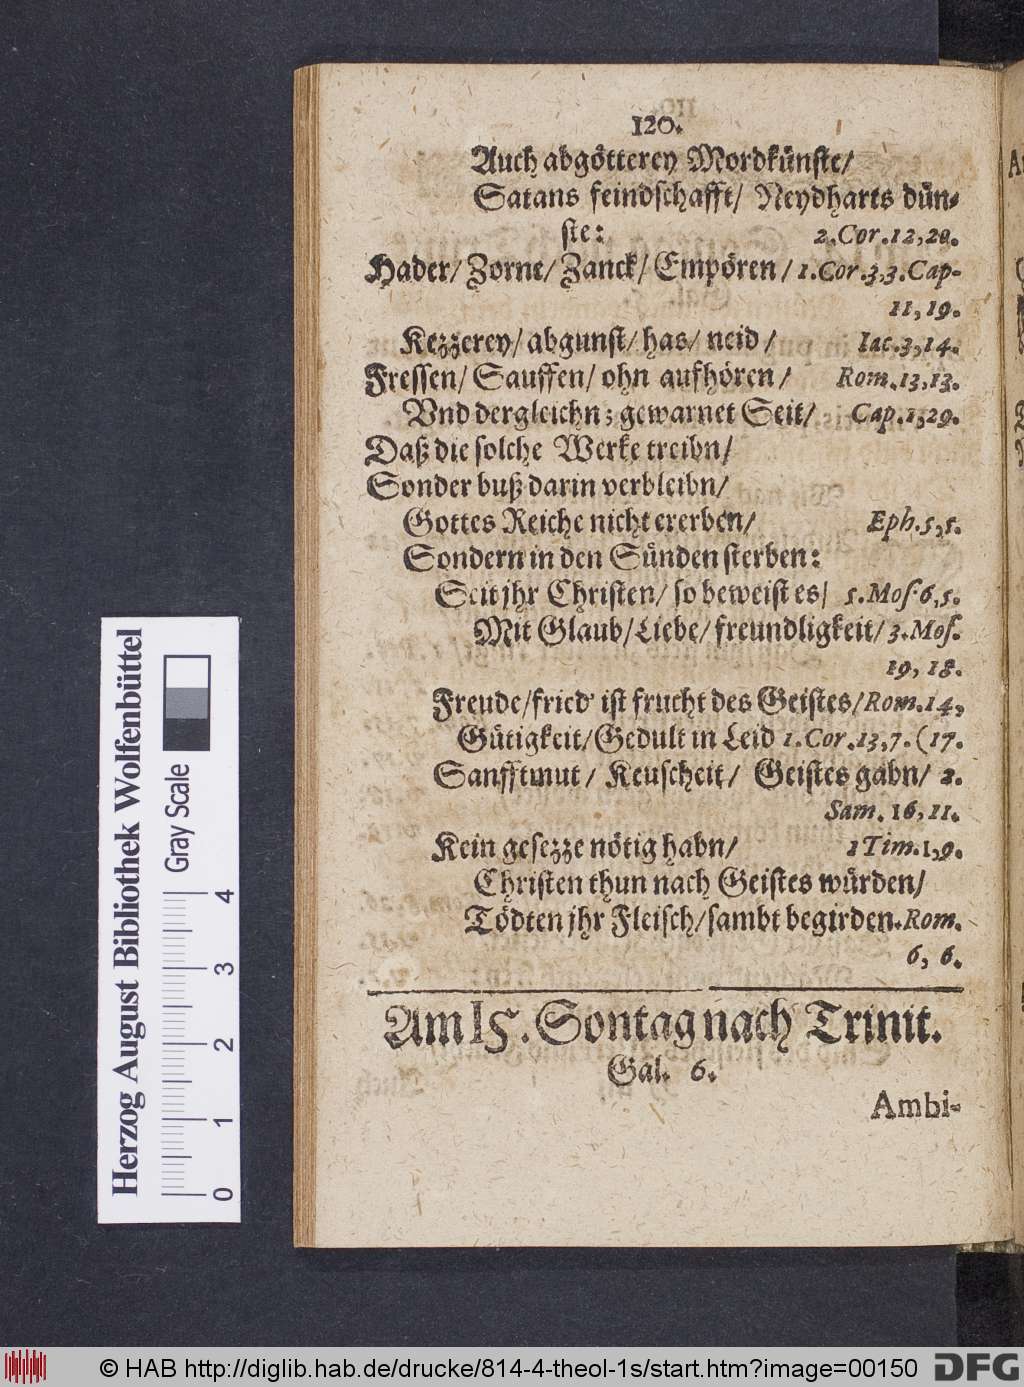 120.
Auch abgötterey Mordkünste/
Satans feindschafft/ Neydharts dün-
ste: 2.Cor.12,20.
Hader/ Zorne/ Zanck/ Empören / 1.Cor.3,3.Cap-
11,19.
Kezzerey/ abgunst/ has/ neid / Iac.3,14.
Fressen/ Sauffen/ ohn aufhören / Rom.13,13.
Vnd dergleichn; gewarnet Seit/ Cap.1,29.
Daß die solche Werke treibn/
Sonder buß darin verbleibn/
Gottes Reiche nicht ererben/ Eph.5,5.
Sondern in den Sünden sterben:
Seit jhr Christen/ so beweist es/ 5.Mos.6,5.
Mit Glaub/Liebe/ freundligkeit/ 3.Mos.
19, 18.
Freude/fried' ist frucht des Geistes/Rom.14,
Gütigkeit/Gedult in Leid 1.Cor.13,7.(17.
Sanfftmut / Keuscheit / Geistes gabn/ 2.
Sam. 16,11.
Kein gesezze nötig habn/ 1 Tim.1,9.
Christen thun nach Geistes würden/
Tödten jhr Fleisch/sambt begirden.Rom.
6, 6.
Am 15. Sontag nach Trinit.
Gal. 6.
Ambi-
Herzog August Bibliothek Wolfenbüttel
Gray Scale
0 1 2 3 4
© HAB http://diglib.hab.de/drucke/814-4-theol-1s/start.htm?image=00150
DFG